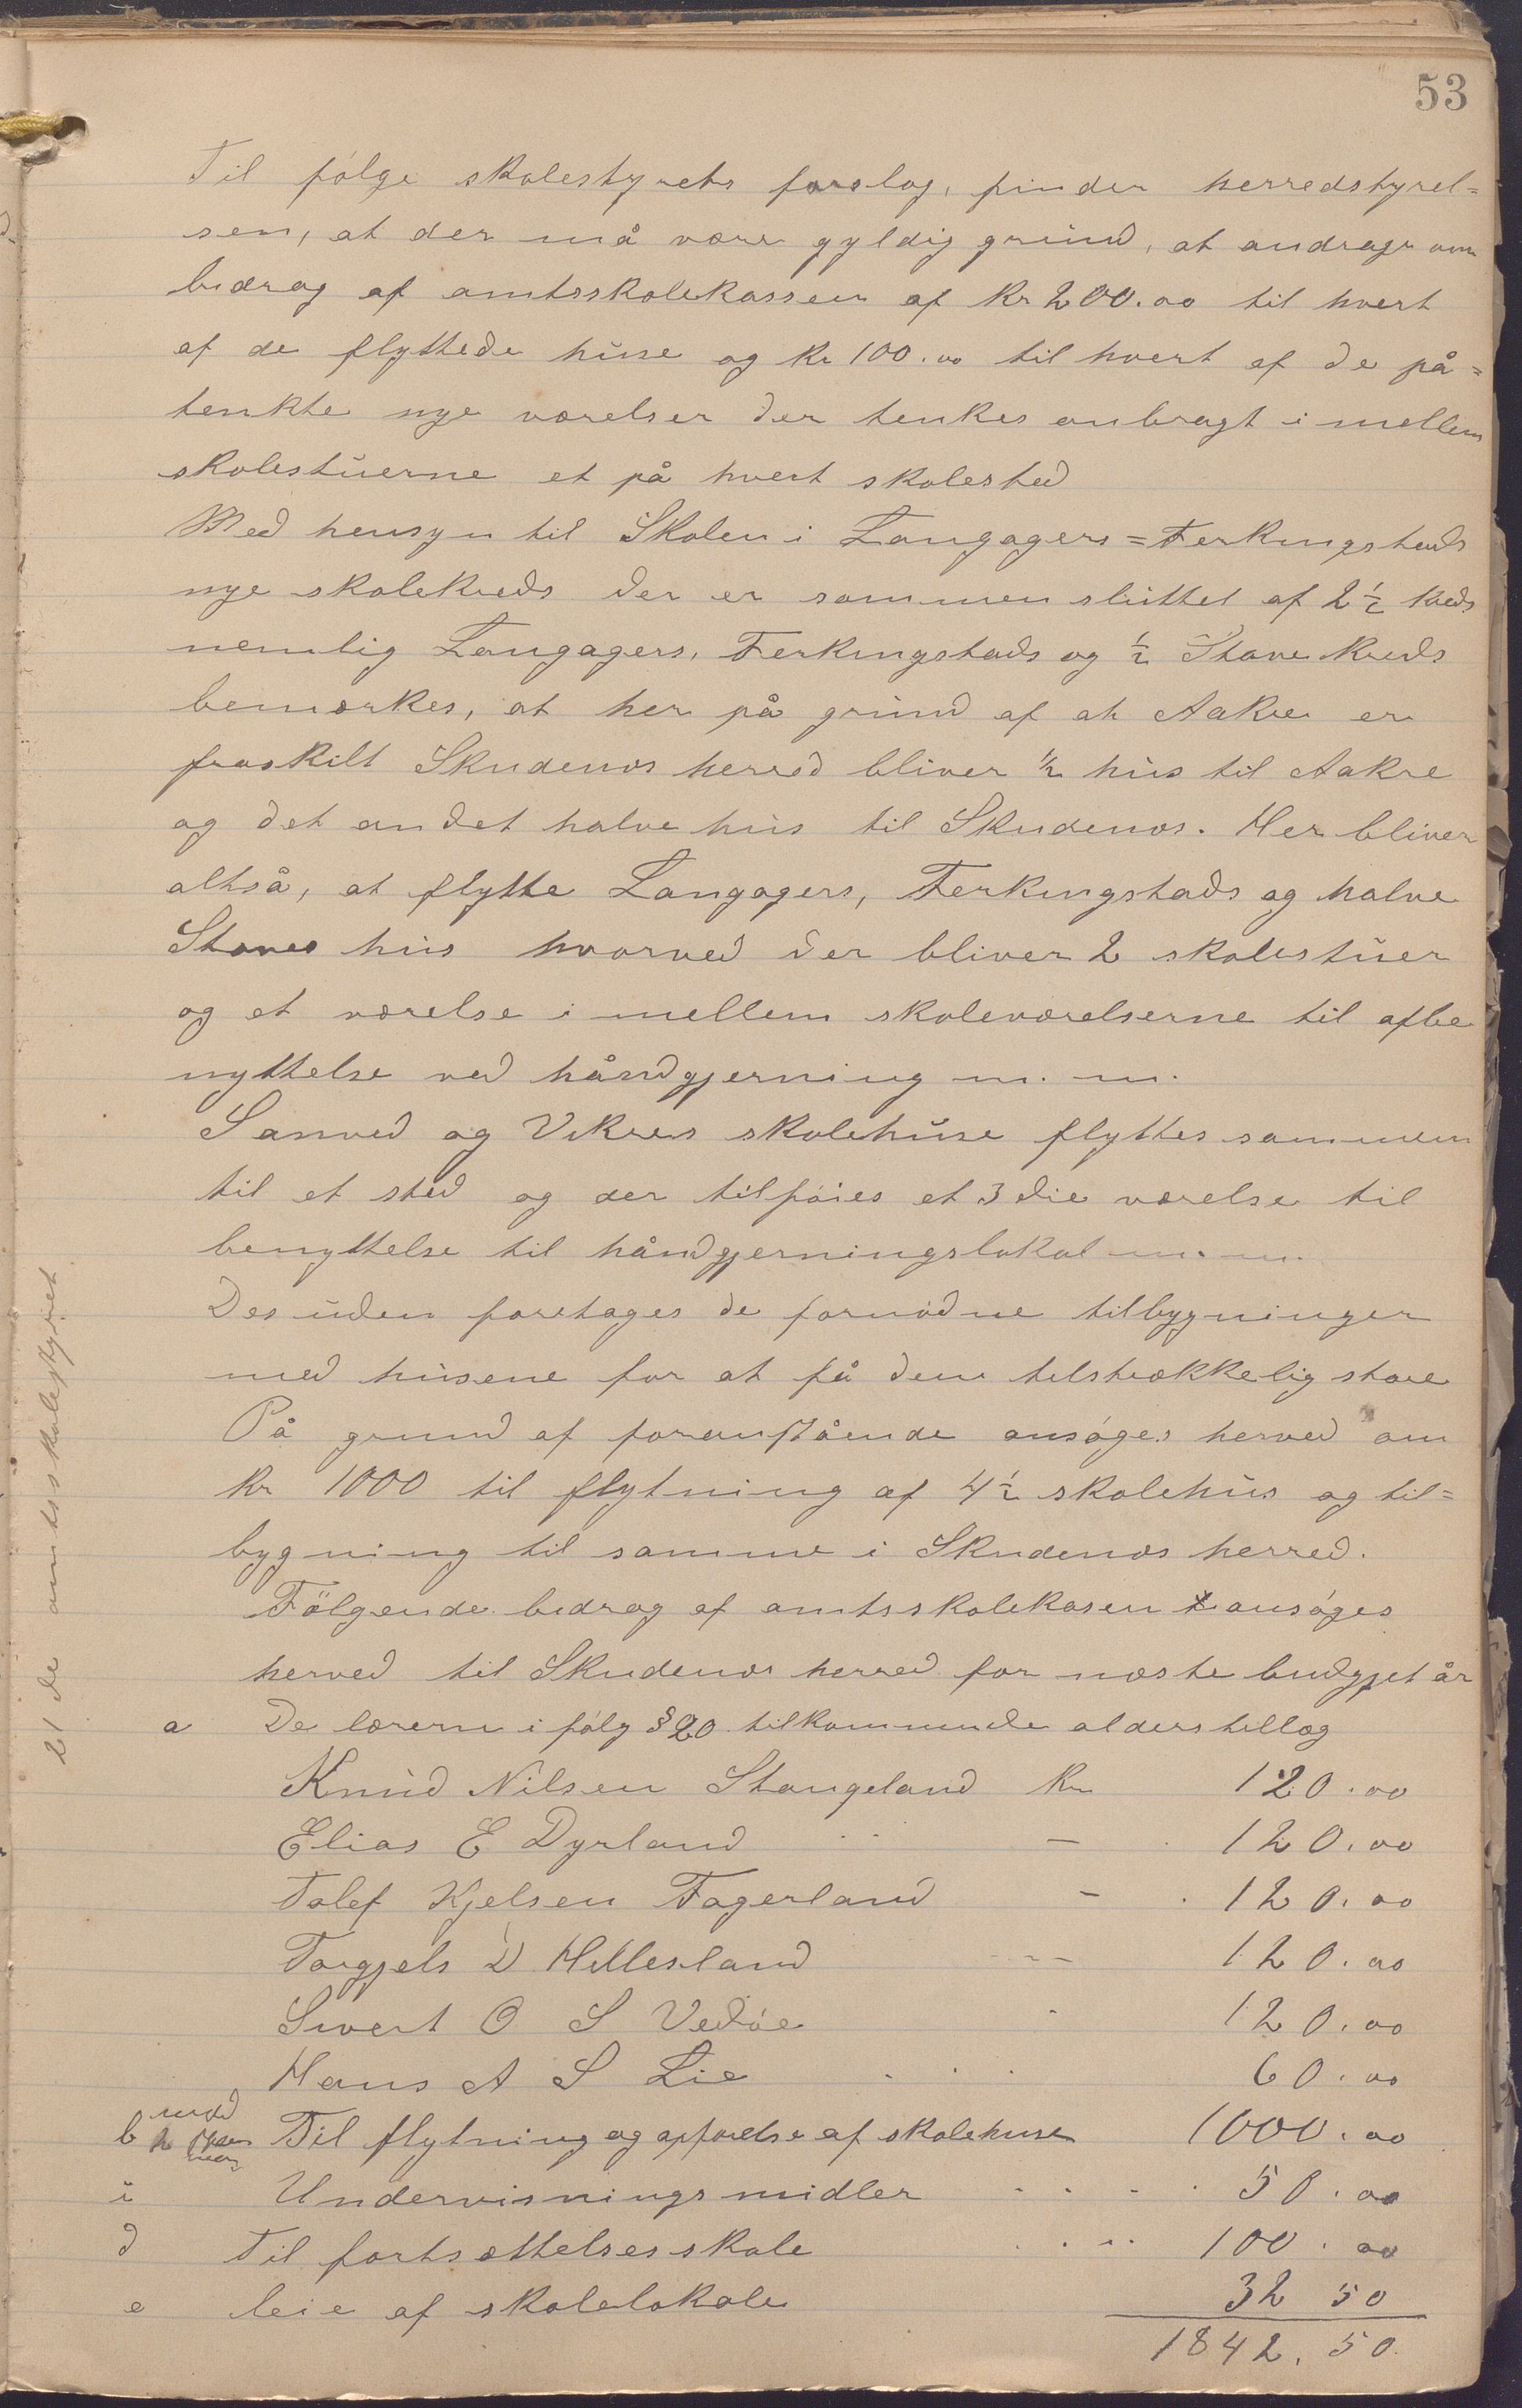 53
Til følge skolestyrets forslag, finder herredstyrel=
sen, at der må være gyldig grund, at andrage om
bidrag af amtsskolekassen af Kr 200.00 til hvert
af de flyttede huse og Kr 100.00 til hvert af de på=
tenkte nye værelser der tenkes anbragt i mellem
skolestuerne et på hvert skolested
Med hensyn til Skolen i Langagers=Ferkingstads
nye skolekreds der er sammensluttet af 2 1/2 kreds
nemlig Langagers, Ferkingstads og 1/2 Stave kreds
bemærkes, at her på grund af at Aakre er
fraskilt Skudenæs herred bliver 1/2 hus til Aakre
og det andet halve hus til Skudenæs. Her bliver
altså, at flytte Langagers, Ferkingstads og halve
Staves hus hvorved der bliver 2 skolestuer
og et værelse i mellem skoleværelserne til afbe
nyttelse ved håndgjerning m. m.
Sanved og Vikres skolehuse flyttes sammen
til et sted og der tilføies et 3die værelse til
benyttelse til håndgjerningslokal m. m.
Desuden foretages de fornødne tilbygninger
med husene for at få dem tilstrækkelig store
På grund af foranstående ansøges herved om
Kr 1000 til flytning af 4 1/2 skolehus og til=
bygning til samme i Skudenæs herred.
Følgende bidrag af amtsskolekasen ansøges
herved til Skudenæs herred for næste budgjet år
a De lærere i følg § 20 tilkommende alderstillæg
Knud Nilsen Stangeland Kr 120.00
Elias E Dyrland — 120.00
Tolef Kjelsen Fagerland - 120.00
Torgjels D Hillesland — 120.00
Sivert O S Vedøe 120.00
Hans A S Lie 60.00
b Til flytning og opførelse af skolehuse 1000.00
Undervisningsmidler 50.00
d Til fortsættelsesskole 100.00
e leie af skolelokale 32 50
1842.50
21 de amtsskolestyret